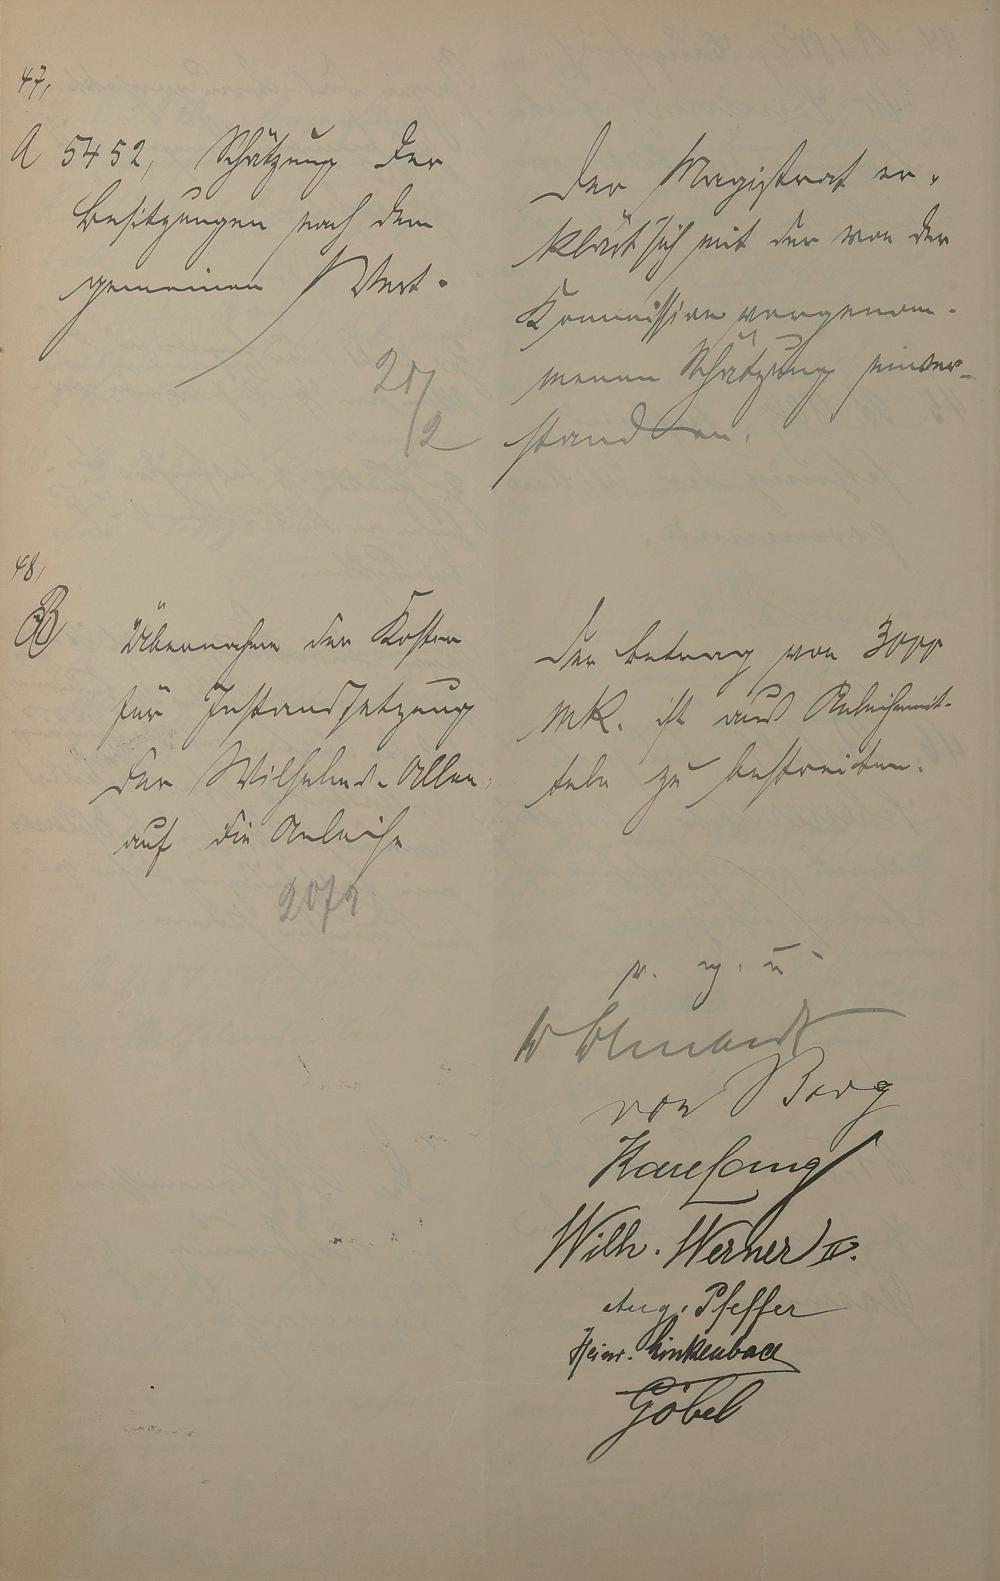 47,
A 5452, Schätzung der
Besitzungen nach dem
gemeinen Wert.
20/2
Der Magistrat er-
klärt sich mit der von der
Kommission vorgenom-
menen Schätzung einver-
standen.
48,
B
Übernahme der Kosten
für Instandsetzung
der Wilhelms-Allee
auf die Anleihe
20/2
Der Betrag von 3000
Mk. ist aus Anleihemit-
teln zu bestreiten.
v. g. u.
von Borg
Karl Lang
Wilh. Werner IV.
Aug. Pfeffer
Heinr. Linkenbach
Göbel